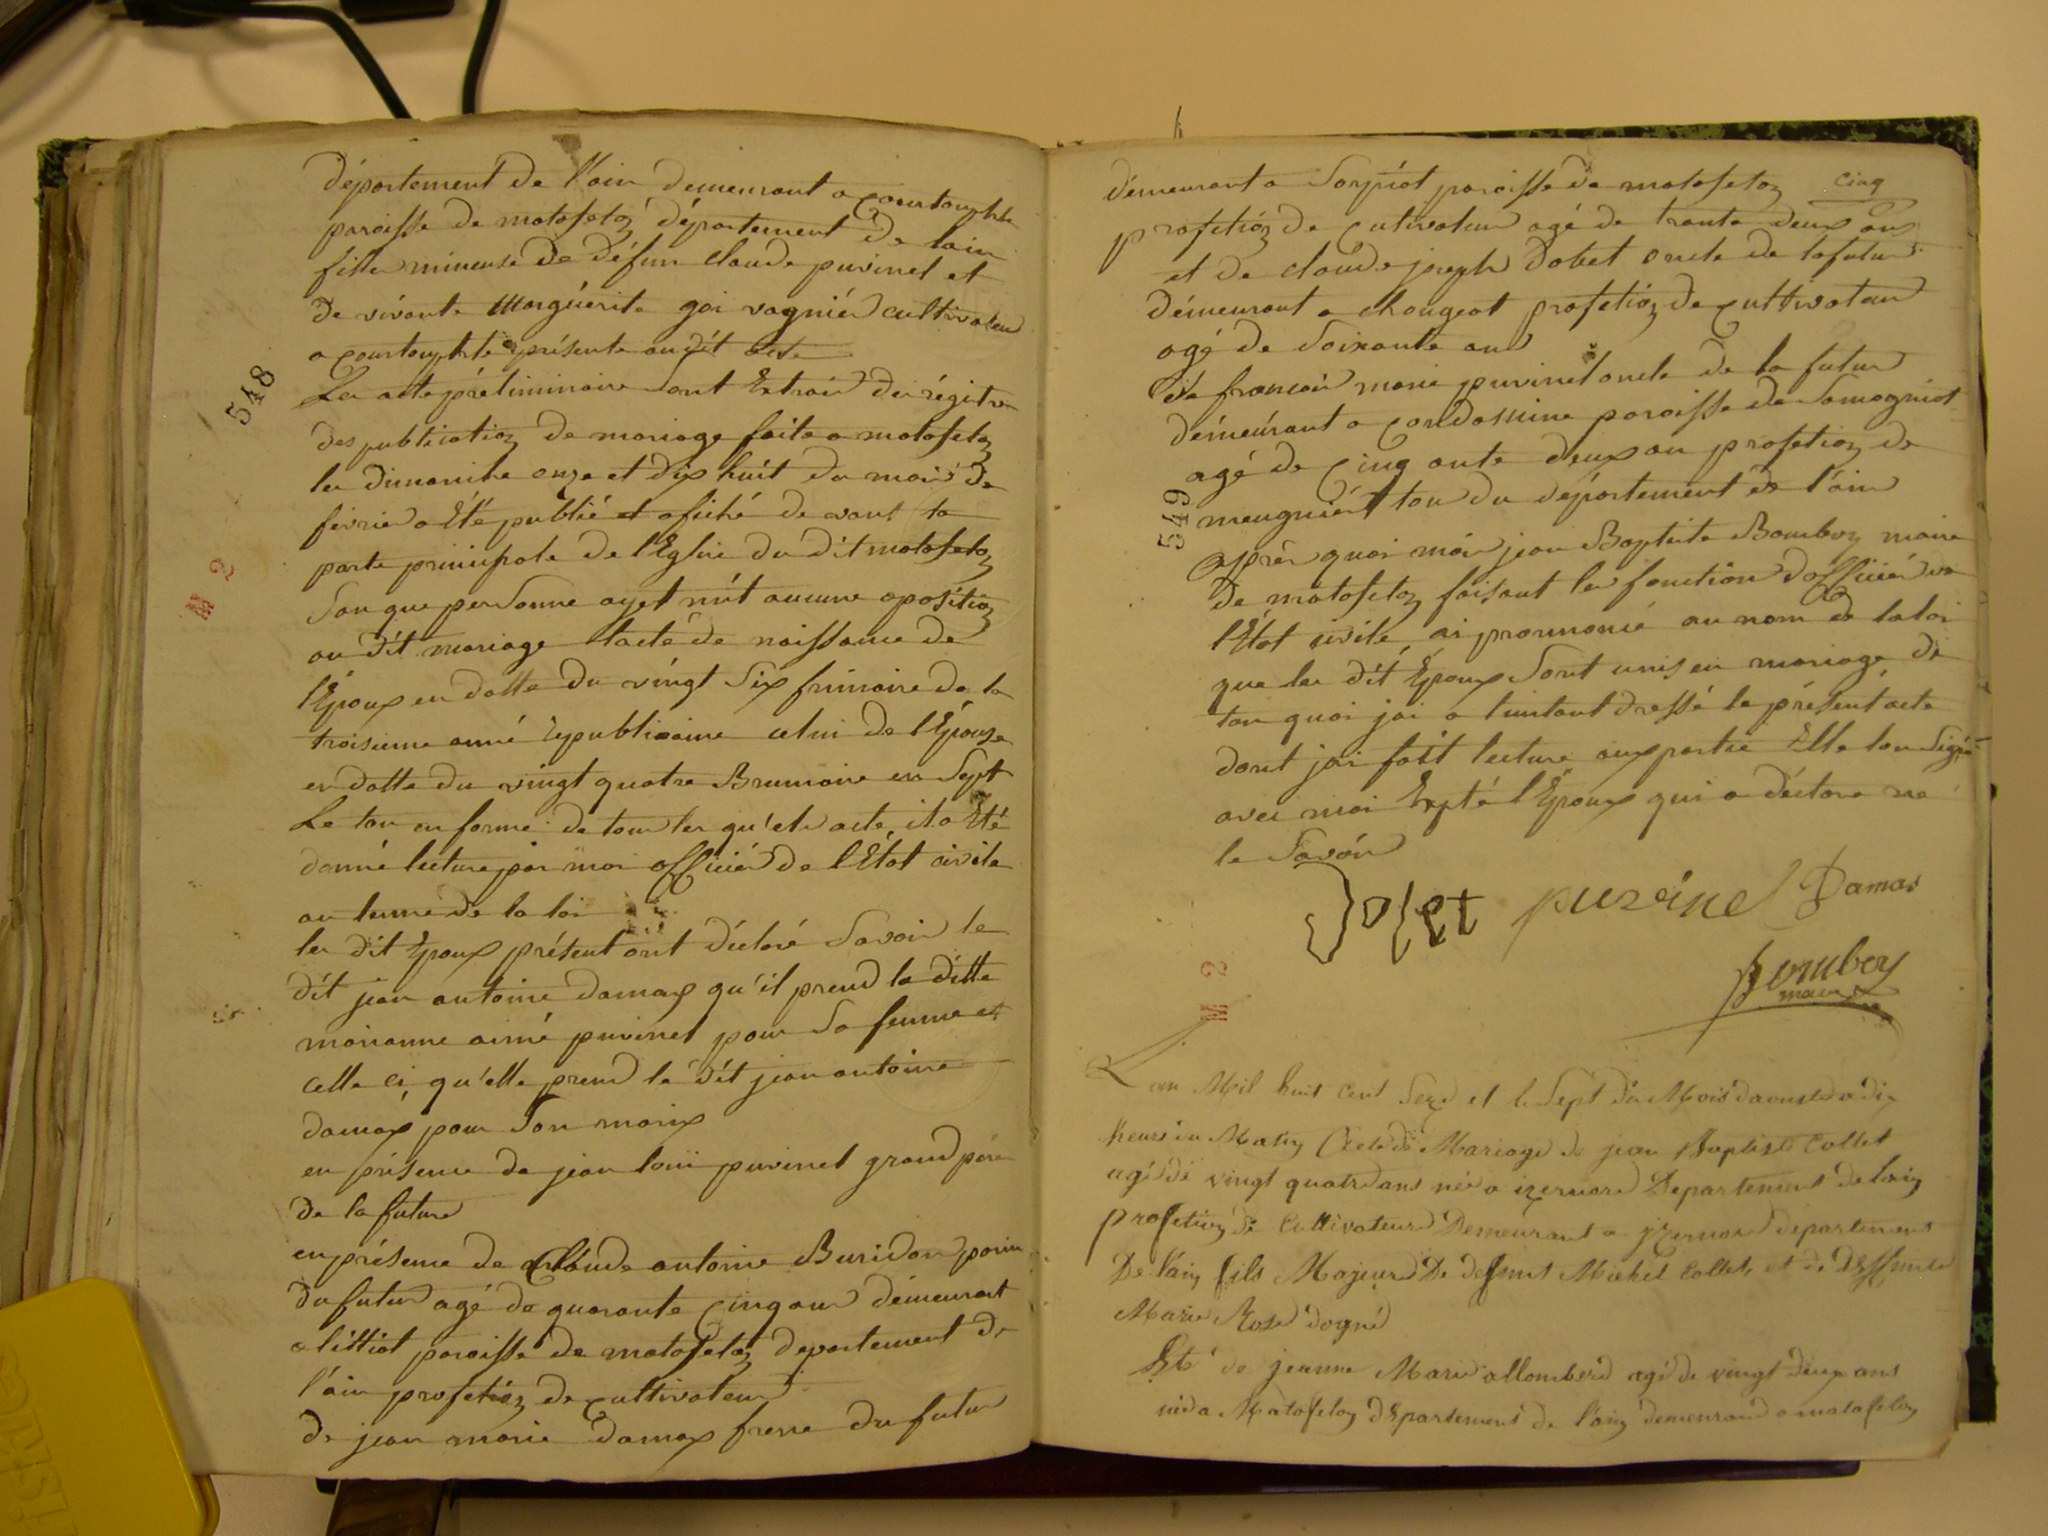 département de l'ain demeurant a courtouphle
paroisse de matafelon département de lain
fille mineure de défun claude puvinel et
de vivante Marguérite goi vagniér cultivateur
a courtouphle présente au dit acte
Les acte préliminaire sont Extrai des régitre
des publication de mariage faite a matafelon
les dimanche onze et dix huit du mois de
fevrier a Eté publié et afiché de vant la
porte principale de l'Eglise du dit matafelon
San que personne ayet mit aucune oposition
au dit mariage l'acte de naissance de
l'Epoux en datte du vingt Six frimaire de la
troisieme anné républicaine celui de l'Epouse
en datte du vingt quatre Brumaire en Sept
Le tou en forme de tour les qu'els acte il a Eté
donné lecture par moi officiér de l'Etat civile
au terme de la loi
les dit Epoux présent ont déclaré Savoir le
dit jean antoine damax qu'il prend la ditte
marianne aimé puvinel pour Sa femme et
celle ci qu'elle prend le dit jean antoine
damax pour Son marix
en présence de jean loui puvinel grand pére
de la future
en présence de Claude antoine Buridon parin
du futur agé de quarante cinq ans démeurant
a littiat paroisse de matafelon departement de
l'ain profetion de cultivateur
de jean marie damax frere du futur
548
démeurant a Sorpiat paroisse de matafelon cinq
profetion de cultivateur agé de trante deux ans
et de claude joseph dobet oncle de la futur
démeurant a chougeat profetion de cultivateur
agé de Soixante ans
de francois marie puvinel oncle de la futur
démeurant a condamine paroisse de Samogniat
agé de cinq ante deux an profetion de
meugniér tou du département de l'ain
549
Aprèr quoi moi jean Baptiste Bomboy maire
de matafelon faisant les fonction d'officiér de
l'Etat civile ai prononcé au nom de la loi
que les dit Epoux Sont unis en mariage de
tou quoi jai a l'instant dressé le présent acte
dont jai fait lecture aux partie Elle l'on Signé
avec moi Expté l'Epoux qui a déclaré ne
le Savoir
Dolet puvinel Damas
Bomboy
maire
Lan Mil huit cent Seze et le Sept du Mois daoust a dix
heurs du Matin Acte de Mariage de jean Baptiste Collet
agé de vingt quatre ans né a izernore Departement de lain
profetion de Cultivateur Demeurant a jzernore departement
De l'ain fils Majeur De defunt Michel Collet et de Deffunte
Marie Rose dogné
Et de jeanne Marie allomberd agé de vingt deux ans
née a Matafelon département de l'ain demeurand a matafelon